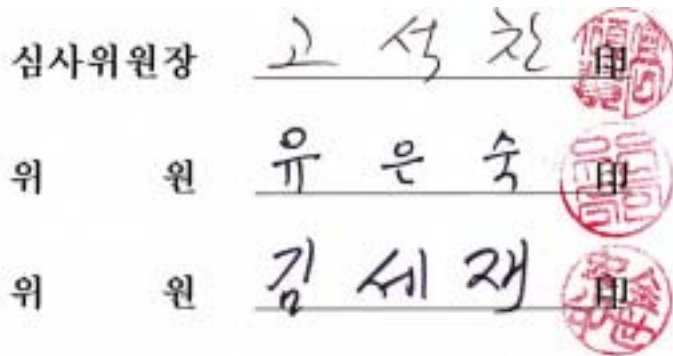 심사위원장 고 석 찬 印
위 원 유 은 숙 印
위 원 김 세 재 印